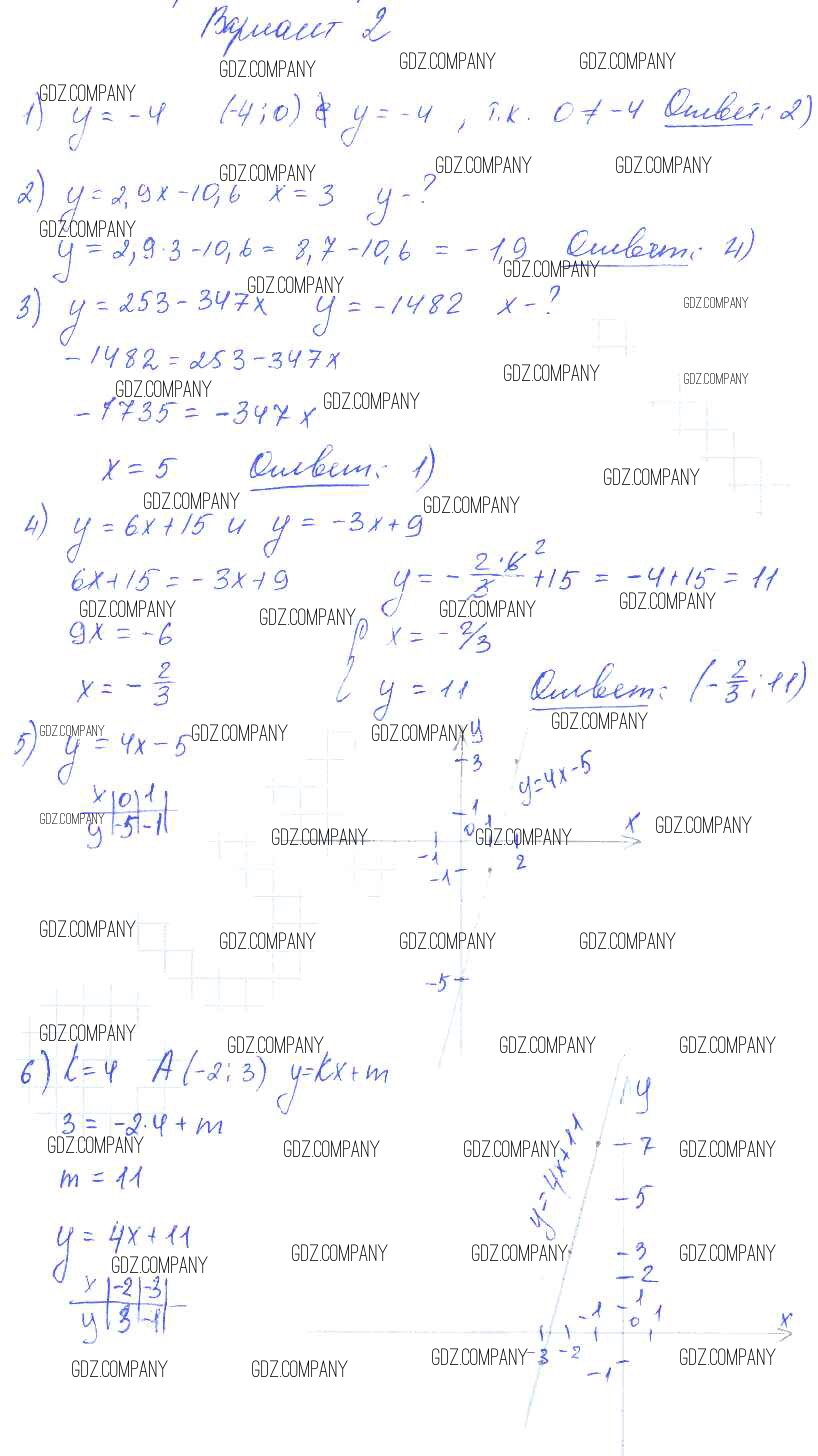 Вариант 2
GDZ.COMPANY GDZ.COMPANY GDZ.COMPANY
GDZ.COMPANY
1) y = -4 (-4; 0) ∉ y = -4 , т.к. 0 ≠ -4 Ответ: 2)
GDZ.COMPANY GDZ.COMPANY GDZ.COMPANY
2) y = 2,9x - 10,6 x = 3 y - ?
GDZ.COMPANY
y = 2,9·3 - 10,6 = 8,7 - 10,6 = -1,9 Ответ: 4)
GDZ.COMPANY GDZ.COMPANY
3) y = 253 - 347x y = -1482 x - ?
GDZ.COMPANY
-1482 = 253 - 347x
GDZ.COMPANY GDZ.COMPANY
GDZ.COMPANY GDZ.COMPANY
-1735 = -347x
x = 5 Ответ: 1)
GDZ.COMPANY
GDZ.COMPANY GDZ.COMPANY
4) y = 6x + 15 и y = -3x + 9
6x + 15 = -3x + 9 y = - 2·6/3 2 + 15 = -4 + 15 = 11
GDZ.COMPANY GDZ.COMPANY GDZ.COMPANY GDZ.COMPANY
9x = -6 { x = -2/3
x = - 2/3 y = 11 Ответ: (- 2/3; 11)
GDZ.COMPANY GDZ.COMPANY GDZ.COMPANY GDZ.COMPANY
5) y = 4x - 5
y
3
y=4x-5
x 0 1
y -5 -1
GDZ.COMPANY GDZ.COMPANY GDZ.COMPANY GDZ.COMPANY
1
0 1 x
-1 2
-1
GDZ.COMPANY GDZ.COMPANY GDZ.COMPANY GDZ.COMPANY
-5
GDZ.COMPANY GDZ.COMPANY GDZ.COMPANY GDZ.COMPANY
6) k = 4 A (-2; 3) y = kx + m
3 = -2·4 + m
GDZ.COMPANY GDZ.COMPANY GDZ.COMPANY GDZ.COMPANY
m = 11
y = 4x + 11
GDZ.COMPANY GDZ.COMPANY GDZ.COMPANY GDZ.COMPANY
x -2 -3
y 3 -1
y
7
y=4x+11
5
3
2
1
-1 0 1 x
-3 -2
-1
GDZ.COMPANY GDZ.COMPANY GDZ.COMPANY GDZ.COMPANY